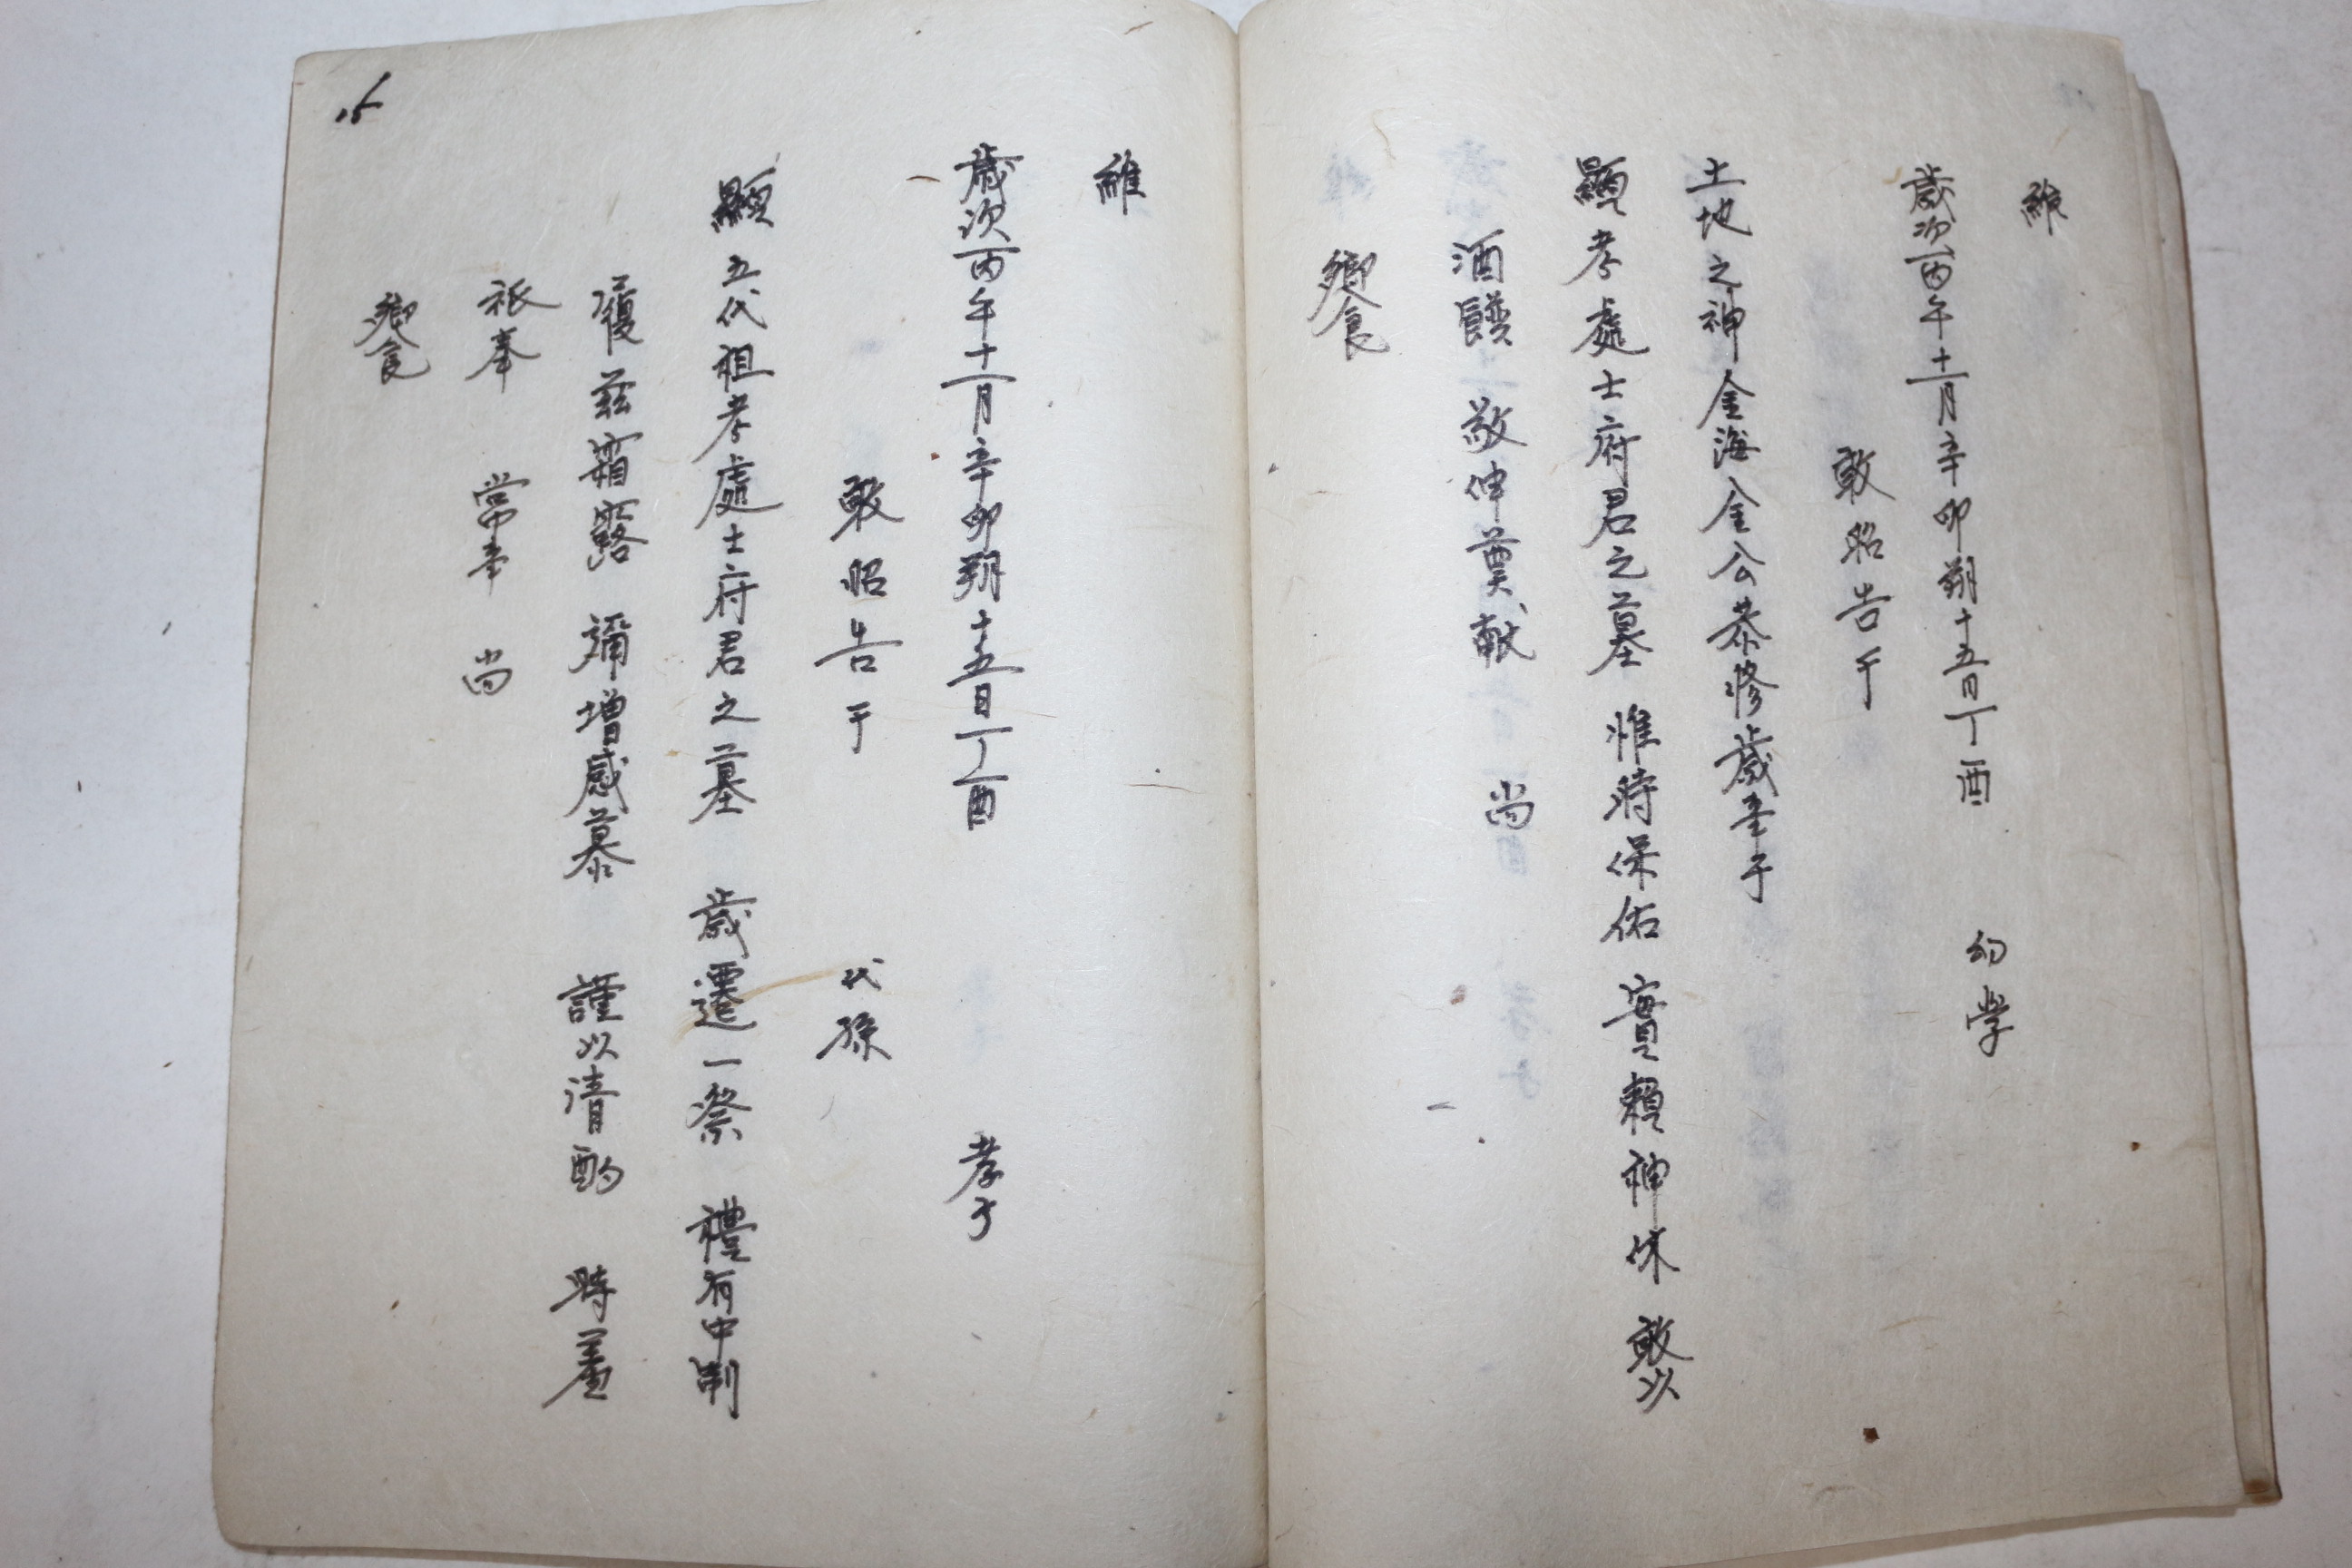 維
歲次丙午十一月辛卯朔十五日丁酉 幼學
敢昭告于
土地之神 金海金公恭修歲事于
顯考處士府君之墓 惟時保佑 實賴神休 敢以
酒饌 敬伸奠獻 尙
饗
維
歲次丙午十一月辛卯朔十五日丁酉 孝子
敢昭告于 代孫
顯五代祖考處士府君之墓 歲遷一祭 禮有中制
履玆霜露 彌增感慕 謹以清酌 時羞
祇奉 常事 尙
饗